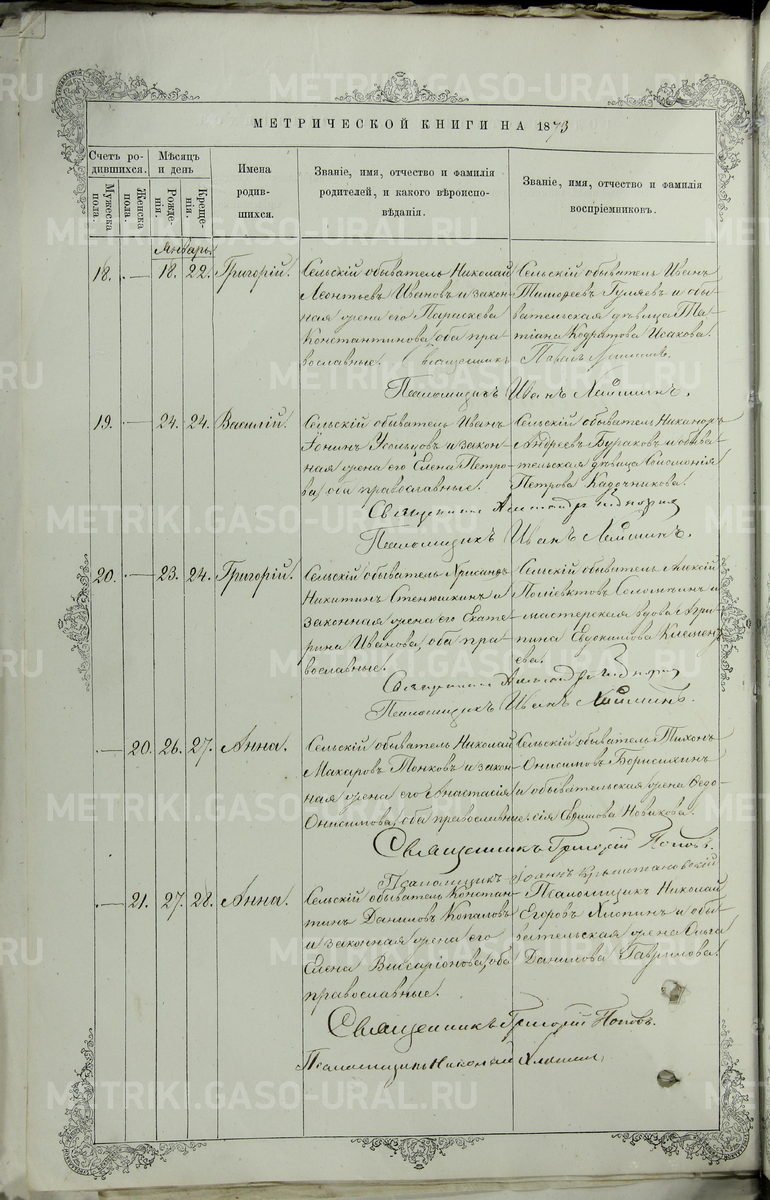 МЕТРИЧЕСКОЙ КНИГИ НА 1873
Счетъ ро-
дившихся.
Мужеска
пола.
Женска
пола.
Мѣсяцъ
и день
Рожде-
нія.
Креще-
нія.
Имена
родив-
шихся.
Званіе, имя, отчество и фамилія
родителей, и какого вѣроиспо-
вѣданія.
Званіе, имя, отчество и фамилія
воспріемниковъ.
Январь
18. — 18. 22. Григорій.
Сельскій обыватель Николай
Леонтьевъ Ивановъ и закон-
ная жена его Параскева
Константинова, оба пра-
вославные. Священникъ
Сельскій обыватель Иванъ
Тимофеевъ Гуляевъ и обы-
вательская дѣвица Та-
тіана Кодратова Исакова.
Псаломщикъ Иванъ Ляпшинъ.
19. — 24. 24. Василій.
Сельскій обыватель Иванъ
Іонинъ Усольцовъ и закон-
ная жена его Елена Петро-
ва, оба православные.
Сельскій обыватель Никаноръ
Андреевъ Бураковъ и обыва-
тельская дѣвица Соломонія
Петрова Кадочникова.
Священникъ Александръ
Псаломщикъ Иванъ Ляпшинъ.
20. — 23. 24. Григорій.
Сельскій обыватель Хрисанфъ
Никитинъ Стенюшкинъ и
законная жена его Екате-
рина Иванова, оба пра-
вославные.
Сельскій обыватель Алексій
Поліевктовъ Соломеинъ и
мастерская вдова Агри-
пина Евдокимова Клемен-
ева.
Священникъ Александръ
Псаломщикъ Иванъ Ляпшинъ.
— 20. 26. 27. Анна.
Сельскій обыватель Николай
Макаровъ Тонковъ и закон-
ная жена его Анастасія
Онисимова, оба православные.
Сельскій обыватель Тихонъ
Онисимовъ Борисихинъ
и обывательская жена Ѳедо-
сія Ефимова Новикова.
Священникъ Григорій Поповъ.
Псаломщикъ Іоаннъ
— 21. 27. 28. Анна.
Сельскій обыватель Констан-
тинъ Даниловъ Копаловъ
и законная жена его
Елена Виссаріонова, оба
православные.
Псаломщикъ Николай
Егоровъ Хлопинъ и обы-
вательская жена Ольга
Данилова Гаврилова.
Священникъ Григорій Поповъ.
Псаломщикъ Николай Хлопин
METRIKI.GASO-URAL.RU